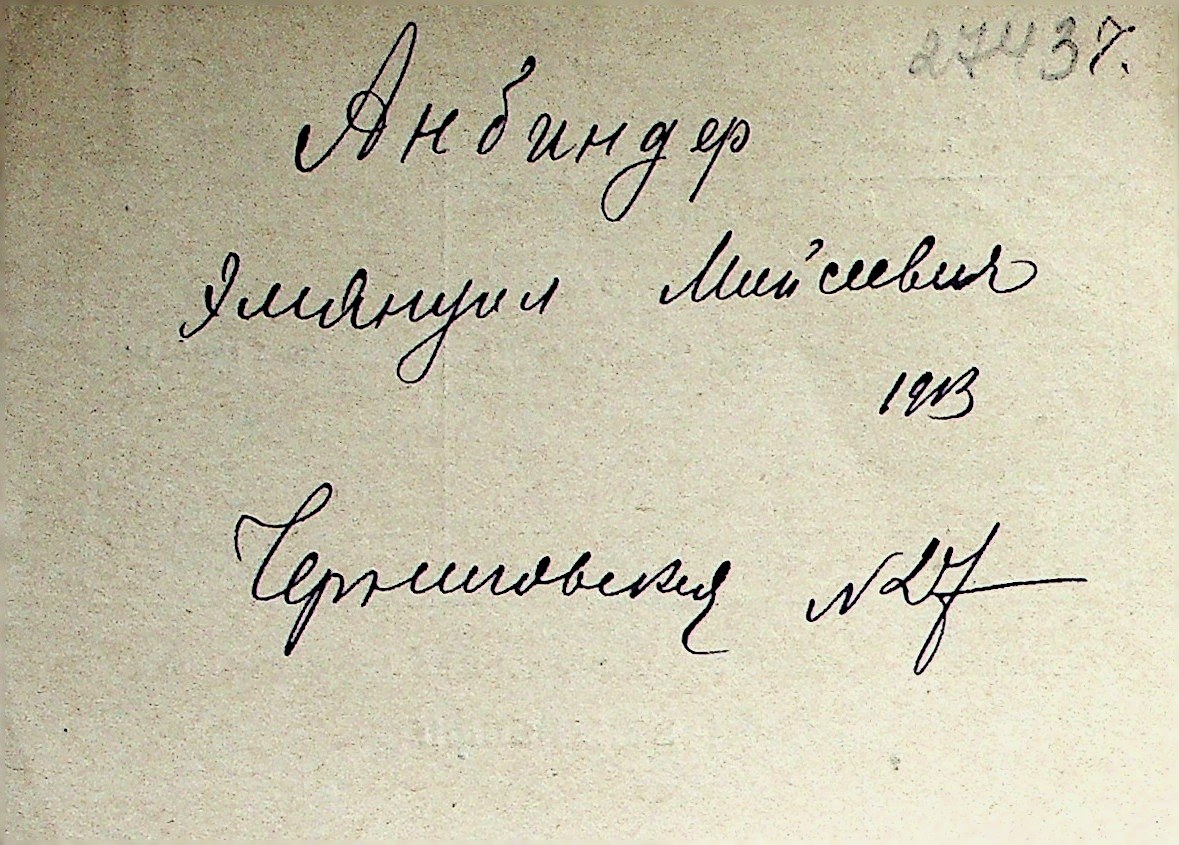 27437.
Анбиндер
Эмануил Мойсеевич
1913
Черниговская N27